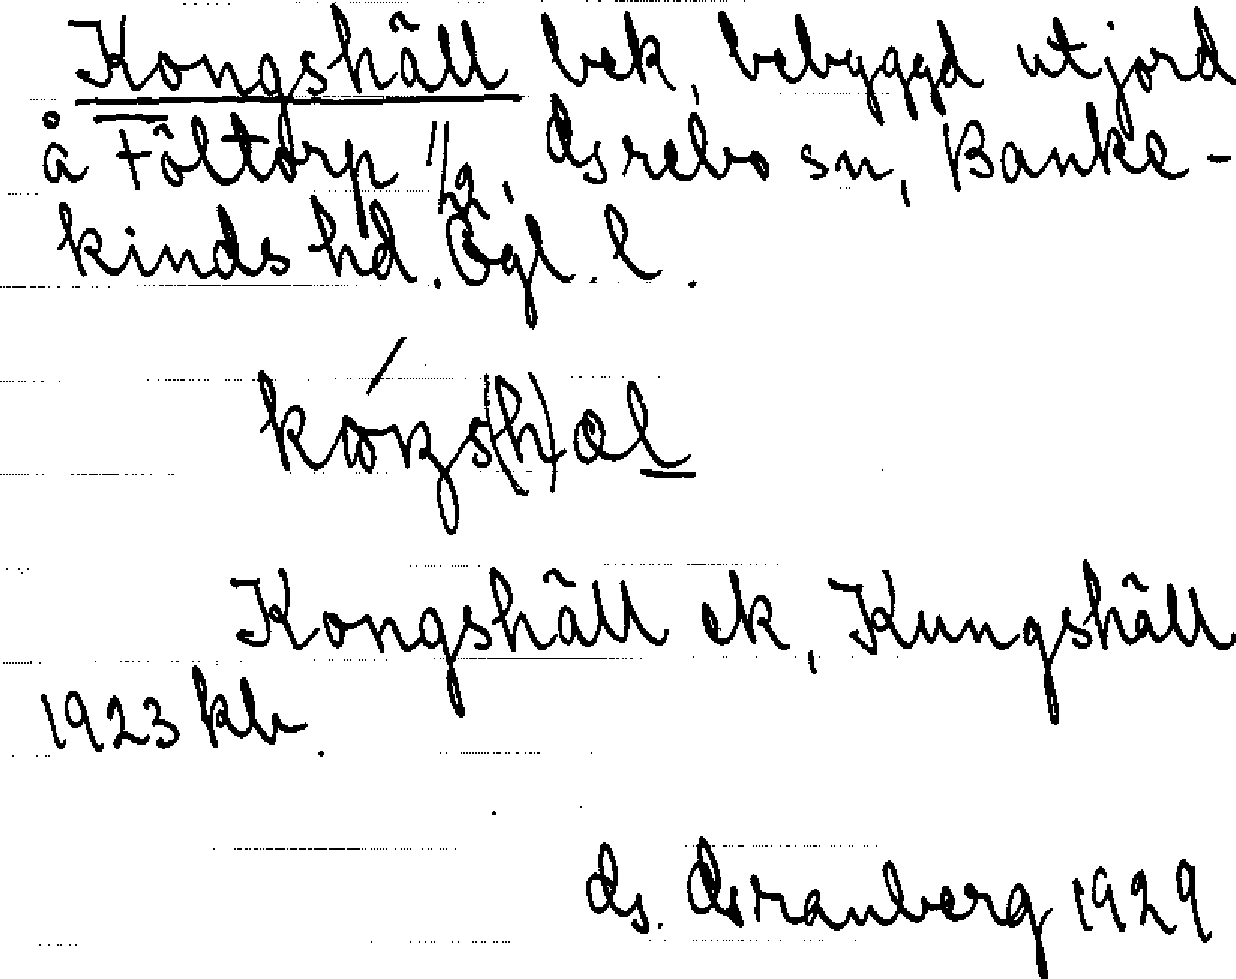 Kongshäll bek, bebyggd utjord
å Föltorp 1/2, Grebo sn, Banke-
kinds hd. Ögl. l.
Kongshäll ek, Kungshäll
1923 kb.
G. Granberg 1929